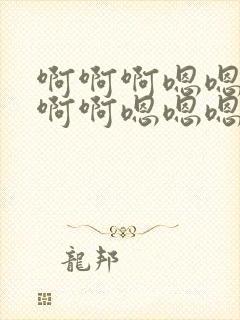 啊啊啊嗯嗯
啊啊嗯嗯嗯
龍邦